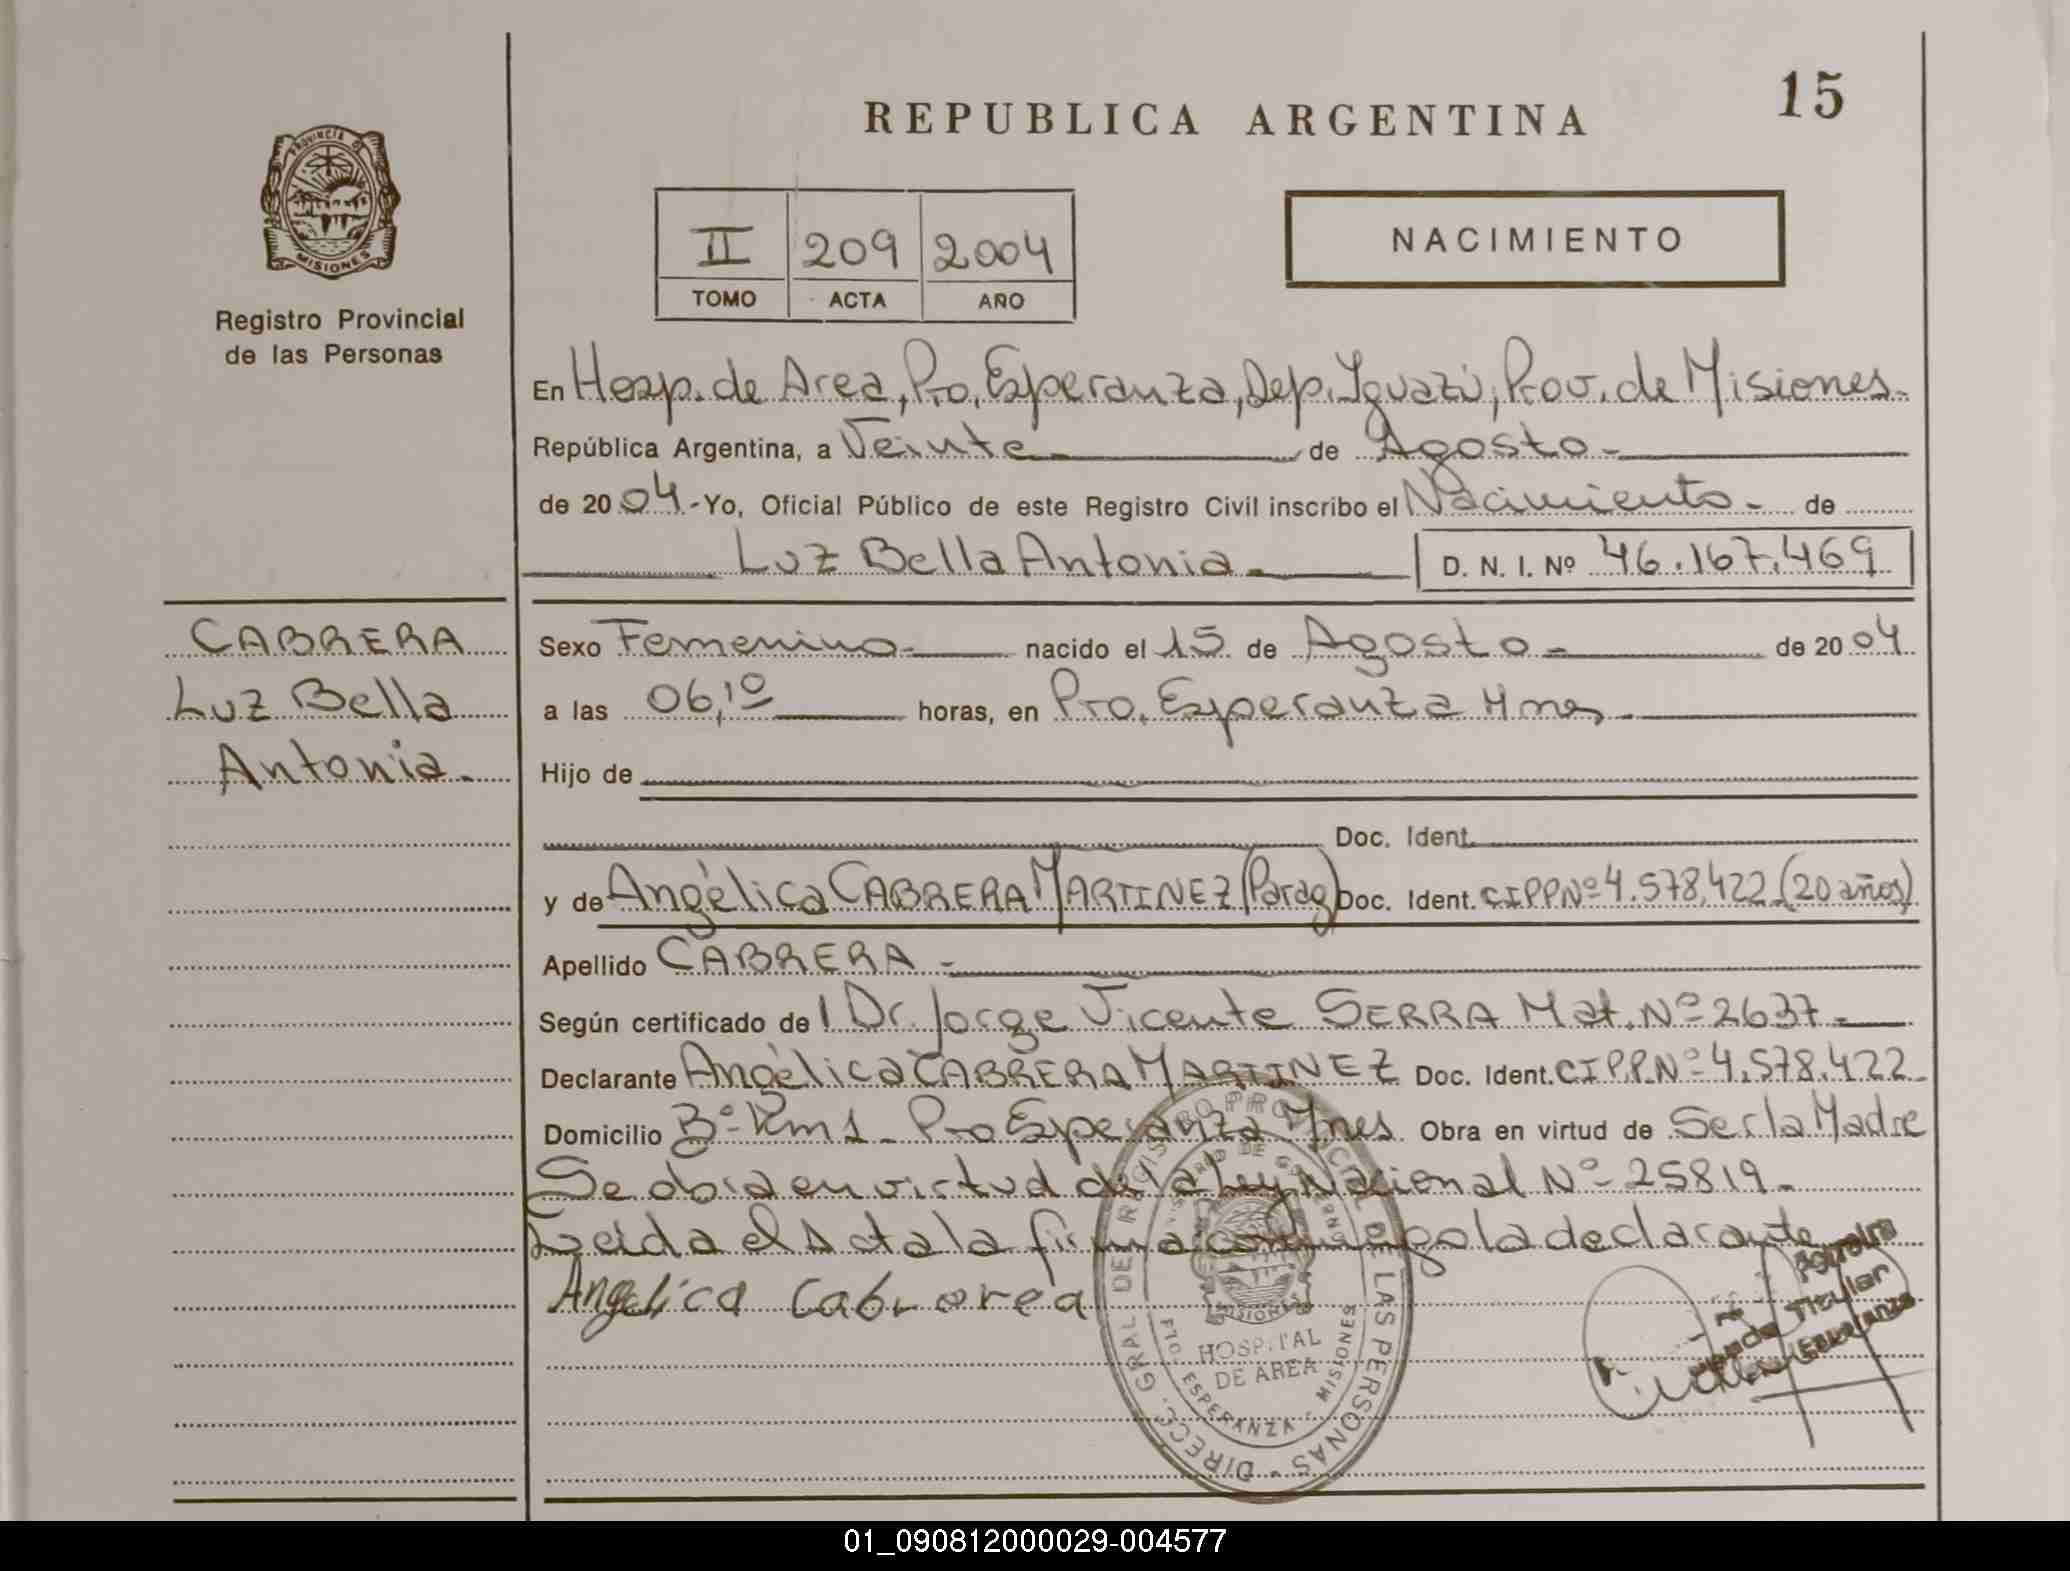 15
REPUBLICA ARGENTINA
PROVINCIA DE
MISIONES
Registro Provincial
de las Personas
II 209 2004
TOMO ACTA AÑO
NACIMIENTO
En Hosp. de Area, Pto. Esperanza, Dep. Iguazú, Prov. de Misiones.
República Argentina, a Veinte de Agosto
de 2004.- Yo, Oficial Público de este Registro Civil inscribo el Nacimiento de
Luz Bella Antonia D. N. I. Nº 46.167.469
CABRERA
Luz Bella
Antonia.
Sexo Femenino nacido el 15 de Agosto de 2004
a las 06,10 horas, en Pto. Esperanza Mnes
Hijo de
Doc. Ident.
y de Angélica CABRERA MARTINEZ (Parag) Doc. Ident. CIPPNº 4.578.422 (20 años)
Apellido CABRERA
Según certificado del Dr. Jorge Vicente SERRA Mat. Nº 2637
Declarante Angélica CABRERA MARTINEZ Doc. Ident. CIP.P.Nº 4.578.422
Domicilio Bº Km 1 Pto Esperanza Mnes Obra en virtud de Ser la Madre
Se obra en virtud de la Ley Nacional Nº 25819.
Leida el Acta la firma conmigo la declarante
Angelica Cabrerea
DIRECC. GRAL DEL REGISTRO PROVINCIAL DE LAS PERSONAS
MISIONES
HOSPITAL
DE AREA
PTO. ESPERANZA - MISIONES
Titular
01_090812000029-004577